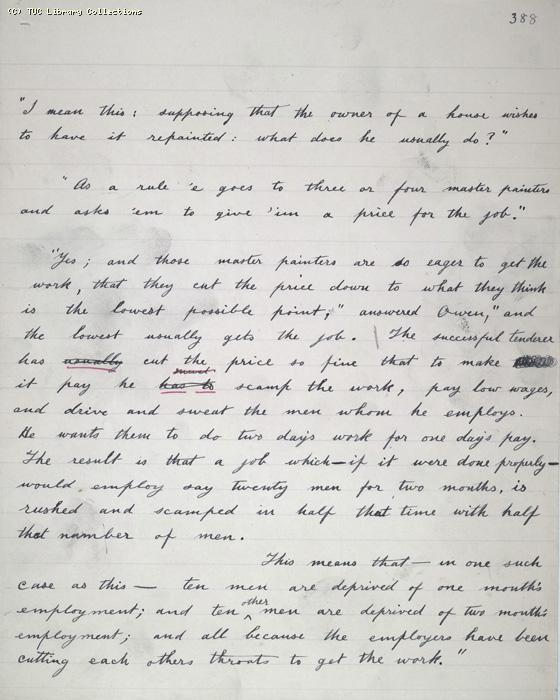 (C) TUC Library Collections
388
"I mean this: supposing that the owner of a house wishes
to have it repainted: what does he usually do?"
"As a rule 'e goes to three or four master painters
and asks 'em to give 'im a price for the job."
"Yes; and those master painters are so eager to get the
work, that they cut the price down to what they think
is the lowest possible point," answered Owen, "and
the lowest usually gets the job. | The successful tenderer
has usually cut the price so fine that to make
must
it pay he has to scamp the work, pay low wages,
and drive and sweat the men whom he employs.
He wants them to do two days work for one day's pay.
The result is that a job which—if it were done properly—
would employ say twenty men for two months, is
rushed and scamped in half that time with half
that number of men.
This means that — in one such
case as this — ten men are deprived of one month's
other
employment; and ten men are deprived of two month's
employment; and all because the employers have been
cutting each others throats to get the work."